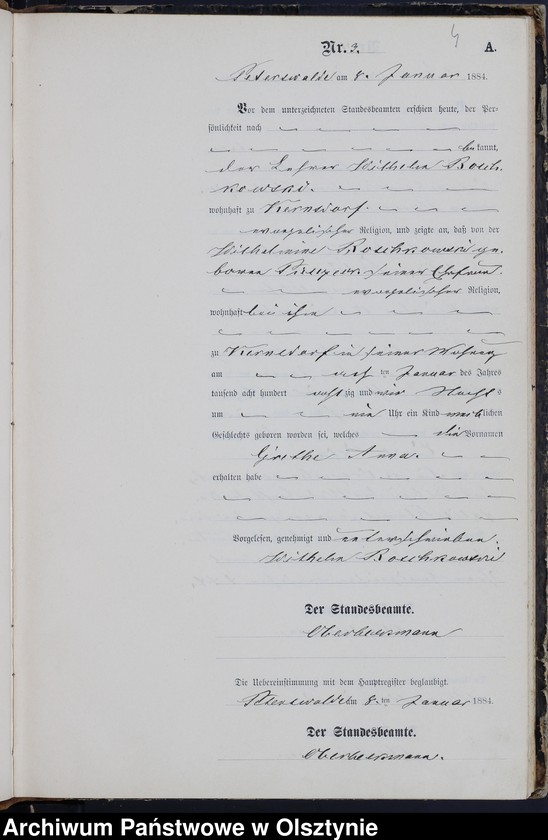 4
Nr. 3. A.
Peterswalde am 8. Januar 1884.
Vor dem unterzeichneten Standesbeamten erschien heute, der Per-
sönlichkeit nach
bekannt,
der Lehrer Wilhelm Rosch-
kowski.
wohnhaft zu Kernsdorf.
evangelischer Religion, und zeigte an, daß von der
Wilhelmine Roschkowski ge-
borene seiner Ehefrau.
evangelischer Religion,
wohnhaft bei ihm
zu Kernsdorf in seiner Wohnung
am ten Januar des Jahres
tausend acht hundert achtzig und vier Nachts
um Uhr ein Kind weiblichen
Geschlechts geboren worden sei, welches die Vornamen
Grethe Anna.
erhalten habe
Vorgelesen, genehmigt und unterschrieben.
Wilhelm Roschkowski
Der Standesbeamte.
Die Uebereinstimmung mit dem Hauptregister beglaubigt.
Peterswalde am 8. ten Januar 1884.
Der Standesbeamte.
Archiwum Państwowe w Olsztynie